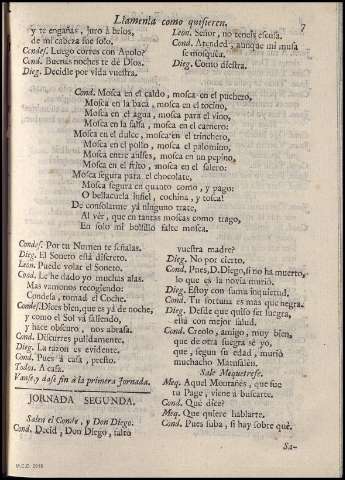 Llamenla como quisieren.
7
y te engañas, juro à brios,
de mi cabeza fue solo.
Condes. Luego corres con Apolo?
Cond. Buenas noches te dè Dios.
Dieg. Decidle por vida vuestra.
Leon. Señor, no teneis escusa.
Cond. Atended, aunque mi musa
se mosquèa.
Dieg. Como diestra.
Cond. Mosca en el caldo, mosca en el puchero,
Mosca en la baca, mosca en el tocino,
Mosca en el agua, mosca para el vino,
Mosca en la salsa, mosca en el carnero:
Mosca en el dulce, mosca en el trinchero,
Mosca en el pollo, mosca el palomino,
Mosca entre anises, mosca en un pepino,
Mosca en el frito, mosca en el salero:
Mosca segura para el chocolate,
Mosca segura en quanto como, y pago:
O bellacuela cochina, y tosca!
De consolarme yà ninguno trate,
Al vèr, que en tantas moscas como trago,
En solo mi bolsillo falte mosca.
Condes. Por tu Numen te señalas.
Dieg. El Soneto està discreto.
Leon. Puede volar el Soneto.
Cond. Le he dado yo muchas alas.
Mas vamonos recogiendo:
Condesa, tomad el Coche.
Condes. Dices bien, que es yà de noche,
y como el Sol và saliendo,
y hace obscuro, nos abrasa.
Cond. Discurres pulidamente.
Dieg. La razon es evidente.
Cond. Pues à casa, presto.
Todos. A casa.
Vanse, y dase fin à la primera Jornada.
JORNADA SEGUNDA.
Salen el Conde, y Don Diego.
Cond. Decid, Don Diego, salto
vuestra madre?
Dieg. No por cierto.
Cond. Pues, D. Diego, si no ha muerto,
lo que es la novia muriò.
Dieg. Estoy con suma inquietud.
Cond. Tu fortuna es mas que negra.
Dieg. Desde que quiso ser suegra,
està con mejor salud.
Cond. Creolo, amigo, muy bien,
que de otra suegra sè yo,
que, segun su edad, muriò
muchacho Matusalèn.
Sale Mequetrefe.
Meq. Aquel Montañès, que fue
tu Page, viene à buscarte.
Cond. Què dice?
Meq. Que quiere hablarte.
Cond. Pues suba, si hay sobre què.
Sa-
M.C.D. 2018